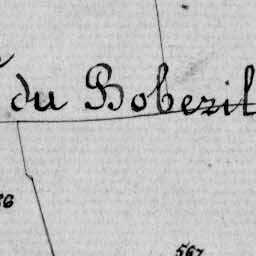 du Boberil
86
567